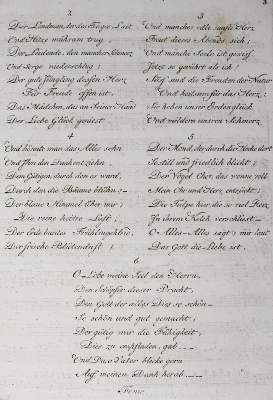 3
2
Der Landman, der des Tages Last
Und Hitze mühsam trug,
Der Leidende, den mancher
Und Sorge niederschlug;
Der gute Jüngling dessen Herz
Für Freude offen ist.
Das Mädchen, das an Seiner Hand
Der Liebe Glück geniest
3
Und manches edle junge Herz
Freut dieses Abends sich;
Und manche Seele ist gewiss
Jetzt so gerührt als ich!
sind die Freuden der Natur
Und heilsam für das Herz;
Sie heben unser Erdenglück
Und mildern unsern Schmerz
4
Und könnt man das Alles sehn
Und Ihm die Dank
Dem Gütigen, durch den es ward,
Durch den die Bäume blühn:
Der blaue Himmel über mir;
Die reine heitre Luft;
Der Erde buntes
Der frische Blüthenduft;
5
Der Mond, der durch die Zweige dort
So still und friedlich blickt;
Der Vogel Chor, das wonne voll
Mein Ohr und Herz entzückt:
Die Tulpe hier, die so viel
In ihrem Kelch verschliest
O Alles Alles sagt mir laut
Das Gott die Liebe ist.
6
O Lobe meine Seel den Herrn,
Den Schöpfer dieser Pracht,
Den Gott der alles Dies so schön
So schön und gut gemacht;
Der gütig mir die Fähigkeit,
Dies zu empfinden, gab
Und Du o Vater blicke gern
Auf meinen Dank herab.
Fine